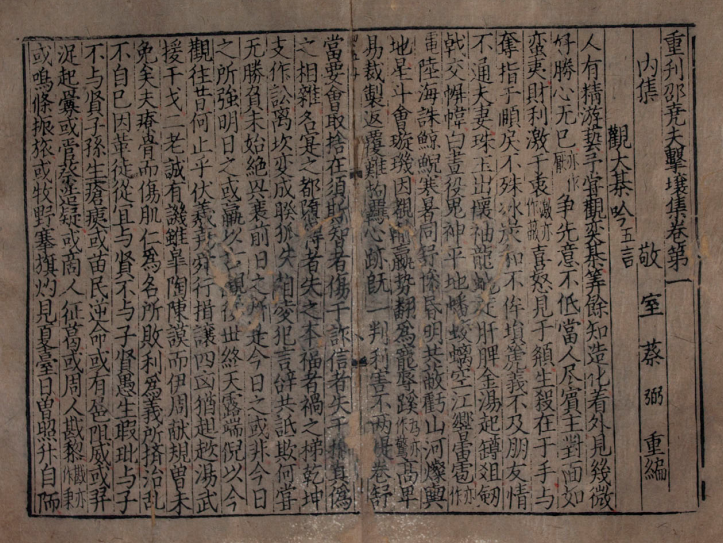 重刊邵堯夫擊壤集卷第一
内集　敬室蔡弼重編
觀大棊吟五言
人有精游藝予甞觀奕棊筭餘知造化着外見幾微
好勝心无已亦作厭争先意不低當人尽賓主對面如
蛮夷財利激于衷喜怒見于頄生殺在于手与
奪指于頤戾不殊冰炭和不侔塤篪義不及朋友情
不通夫妻珠玉出懷袖龍蛇走肝脾金湯起罇俎劒
戟交幈幃白晝役鬼神平地蟠蛟螭空江響雷雹亦作
重陸海誅鯨鯢寒暑同舒慘昏明共蔽虧山河燦輿
地星斗會璇璣因覩輸贏勢翻爲寵辱蹊髙卑
易裁製返覆難拘羈心跡既一判利害不兩提卷舒
當要會取捨在須臾智者傷于詐信者失于真偽
之相雜名寔之都隳得者失之本福者禍之梯乾坤
支作訟离坎变成睽失相凌犯言辞共詆欺何甞
无勝負未始絶兴衰前日之所是今日之或非今日
之所強明日之或羸以古觀後世終天露端倪以今
觀往昔何止乎伏羲尭舜行揖讓四凶猶趑趄湯武
援干戈二老誠有譏雖皐陶陳謨而伊周献規曽未
免矣夫療骨而傷肌仁爲名所敗利爲義所擠治乱
不自已因革徒從宜与賢不与子賢愚生瑕玼与子
不与賢子孫生瘡痍或苗民逆命或有扈阻威或羿
浞起舋或管蔡造疑或商人征葛或周人戡黎戡亦作乘
或鳴條振旅或牧野搴旗灼見夏臺日曽照升自陑